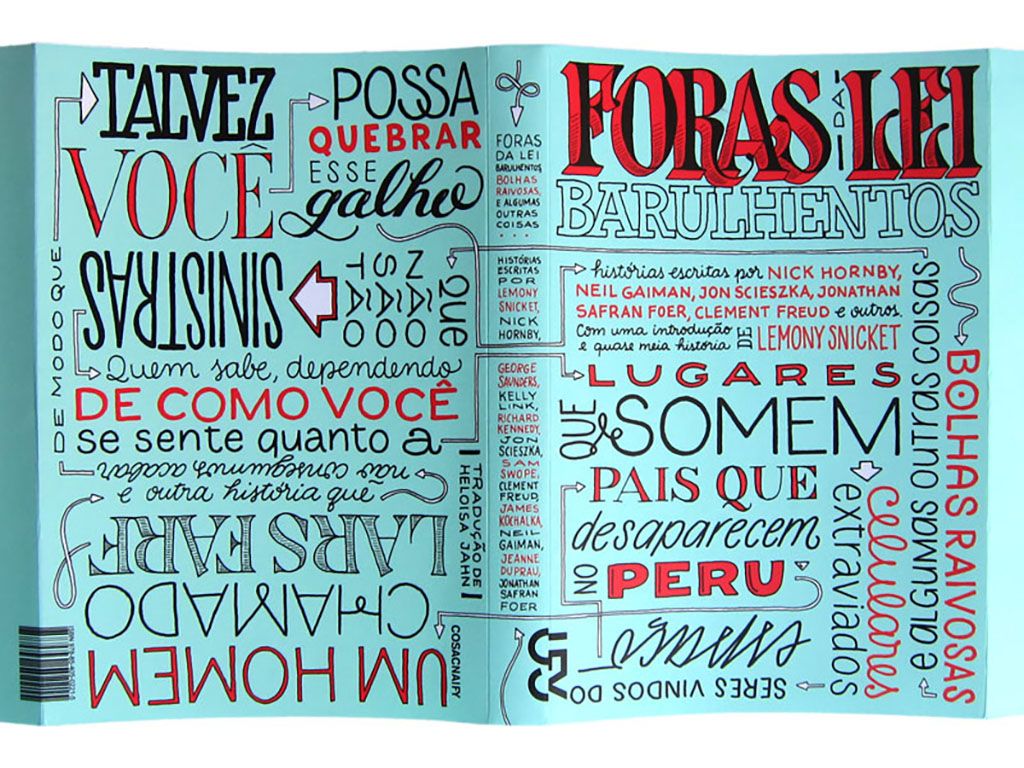 FORAS DA LEI
BARULHENTOS
BOLHAS RAIVOSAS
e ALGUMAS OUTRAS COISAS
histórias escritas por NICK HORNBY,
NEIL GAIMAN, JON SCIESZKA, JONATHAN
SAFRAN FOER, CLEMENT FREUD e outros.
Com uma introdução
e quase meia história DE LEMONY SNICKET
LUGARES
QUE SE SOMEM
PAIS QUE
desaparecem
NO PERU
celulares
extraviados
SERES VINDOS DO
espaço
FORAS
DA LEI
BARULHENTOS,
BOLHAS
RAIVOSAS,
E ALGUMAS
OUTRAS
COISAS
...
HISTÓRIAS
ESCRITAS
POR
LEMONY
SNICKET,
NICK
HORNBY,
GEORGE
SAUNDERS,
KELLY
LINK,
RICHARD
KENNEDY,
JON
SCIESZKA,
SAM
SWOPE,
CLEMENT
FREUD,
JAMES
KOCHALKA,
NEIL
GAIMAN,
JEANNE
DUPRAU,
JONATHAN
SAFRAN
FOER
UM HOMEM
CHAMADO
LARS FARF
e outra história que
não conseguimos acabar
DE MODO QUE
TALVEZ
VOCÊ
POSSA
QUEBRAR
ESSE
galho
QUE
NÃO
SÃO
TÃO
SINISTRAS
Quem sabe, dependendo
DE COMO VOCÊ
se sente quanto a
TRADUÇÃO DE
HELOISA JAHN
COSACNAIFY